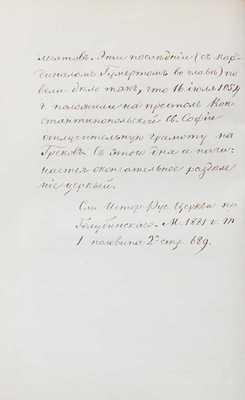 легатовъ. Эти послѣднiе (съ кар-
диналомъ Гумбертомъ во главѣ) по
вели дѣло такъ, что 16 iюля 1054
г. положили на престолъ Кон-
стантинопольской св. Софiи
отлучительную грамоту на
Грековъ. Съ этого дня и начи-
нается окончательное раздѣле
нiе церквей.
См. Истор. Рус. Церкви по
Голубинскаго. М. 1881 г. Т. I
1 половина 2 стр. 689.